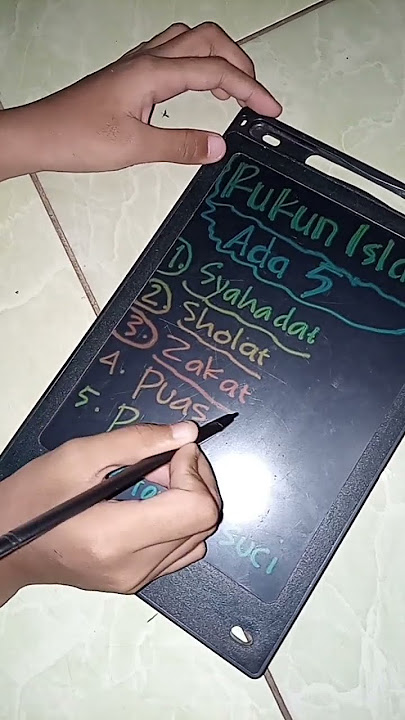 Rukun Isla
Ada 5
1. Syahadat
2. Sholat
3. Zakat
4. Puas
5.
suci